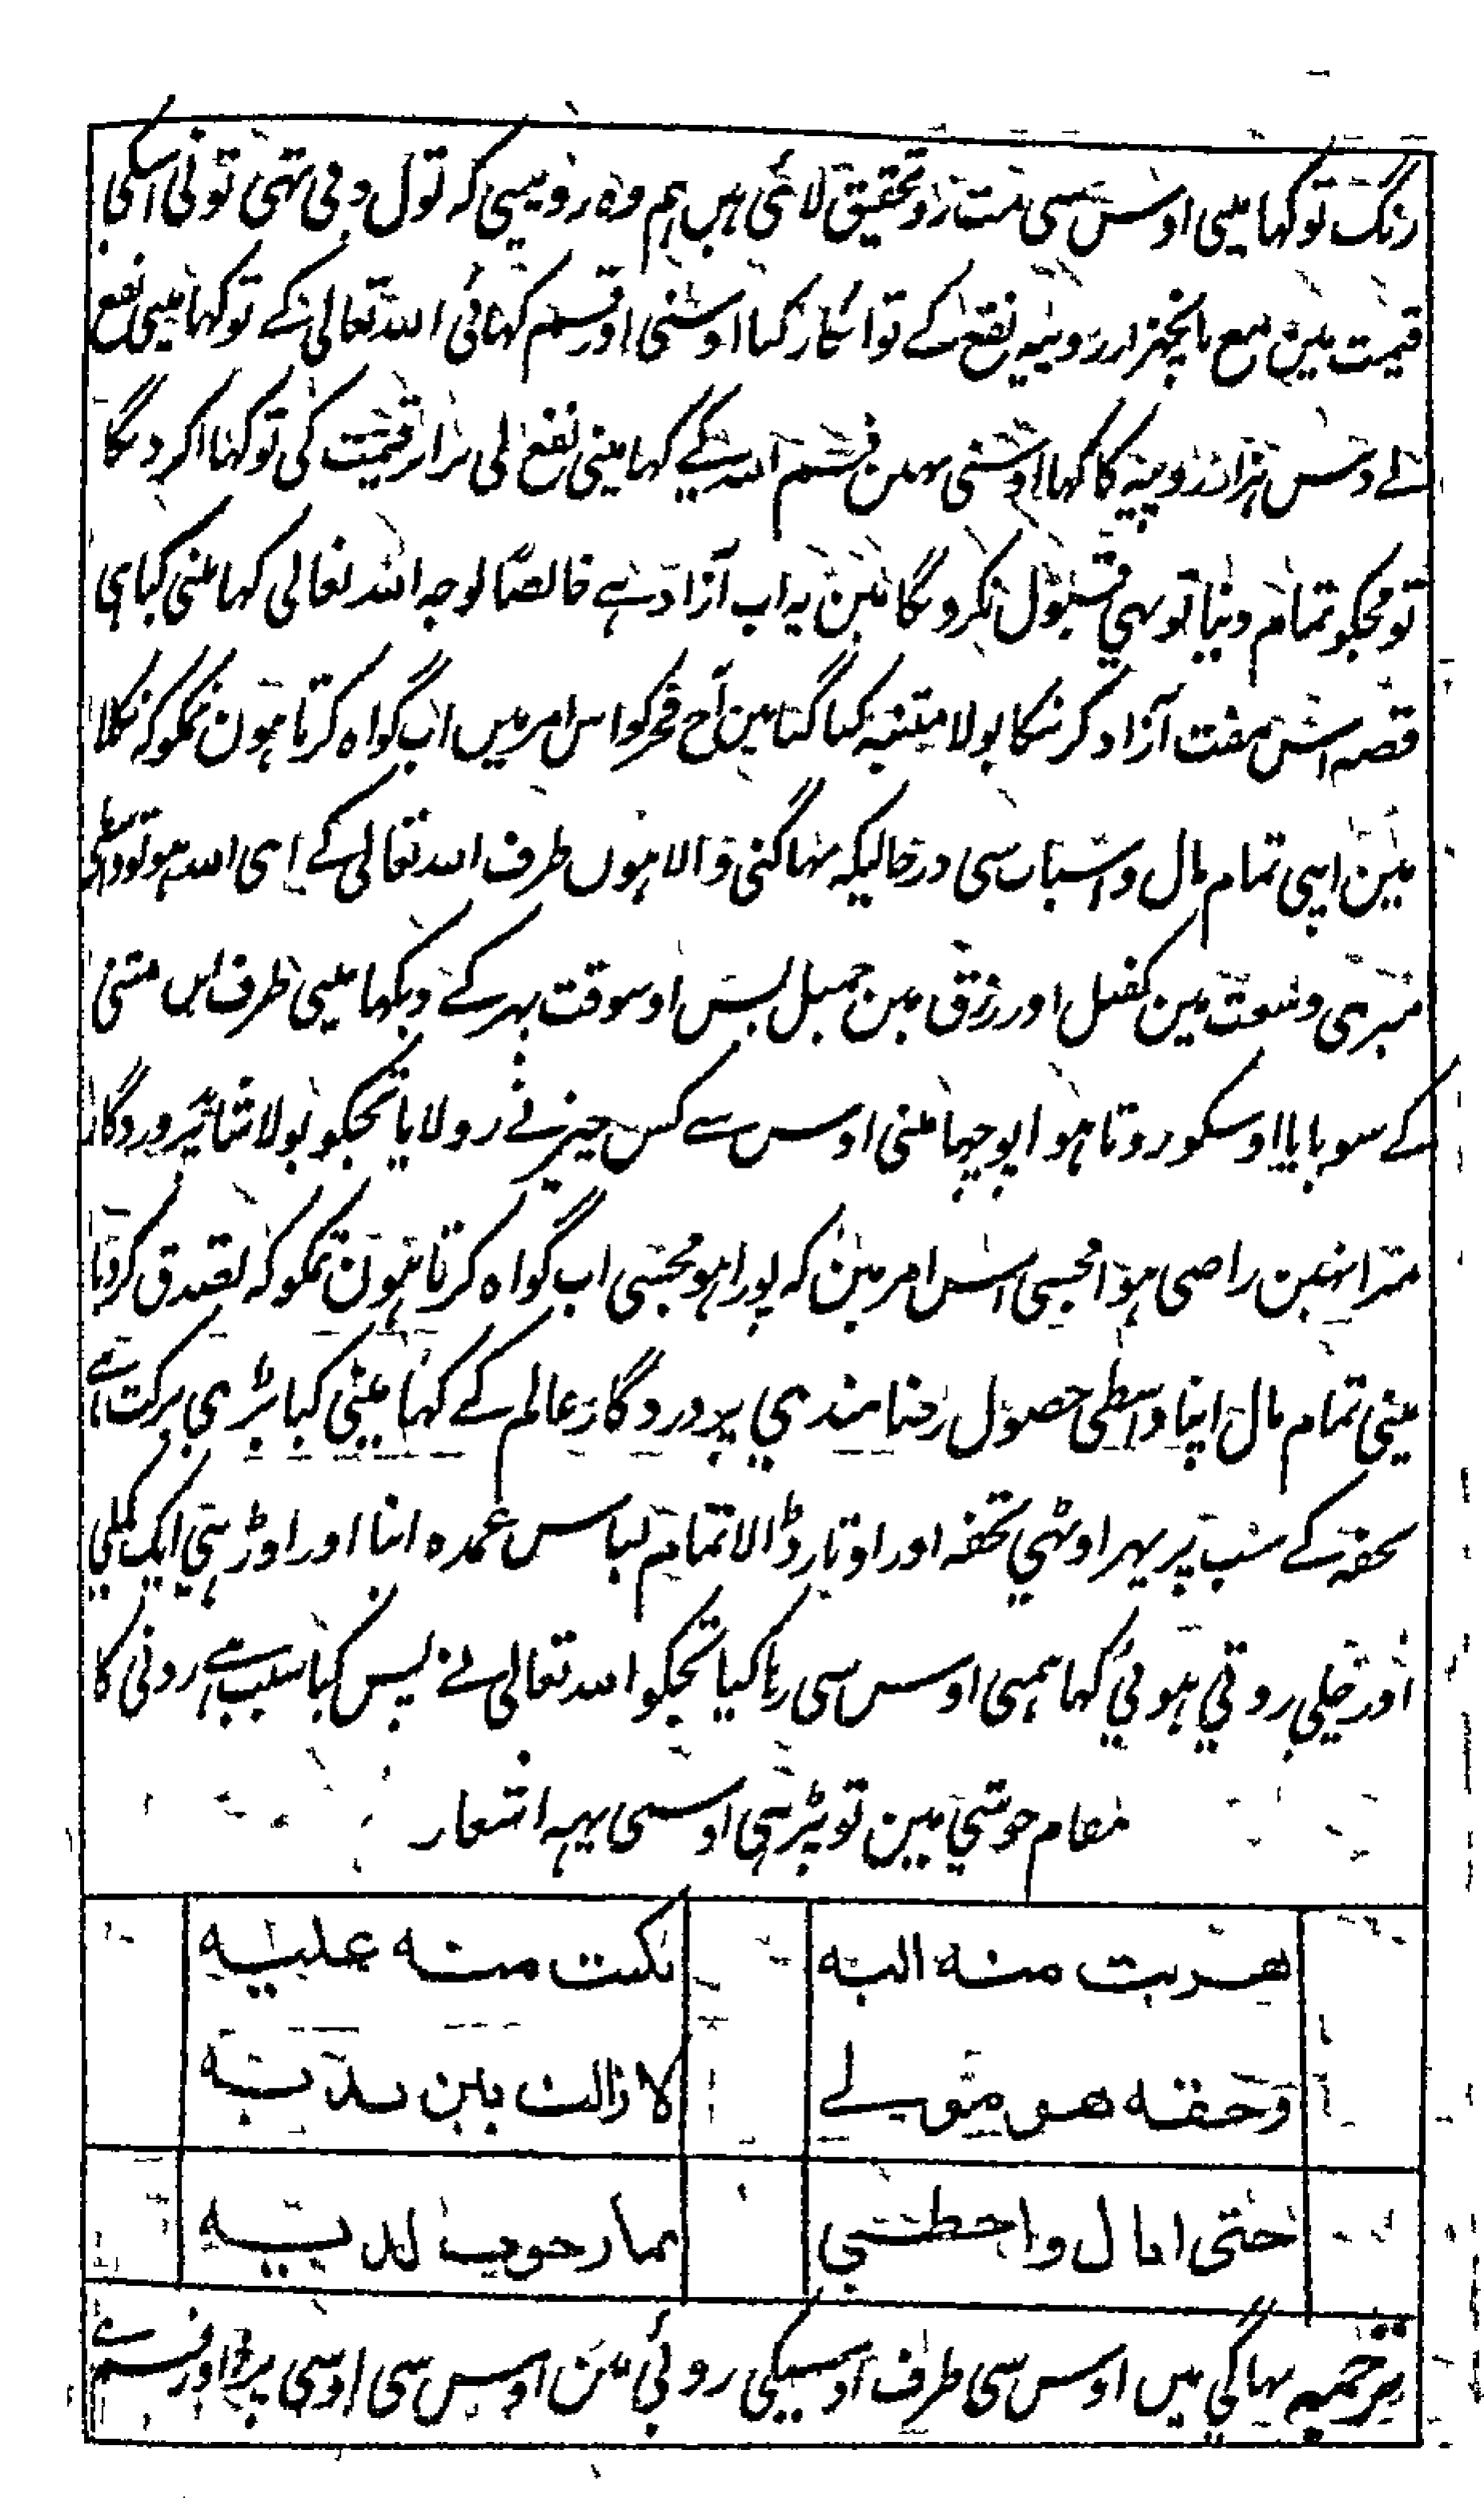 رنگ تو کہا مینی اوس سی مت رو تحقیق لائی ہیں ہم وہ روپیی کہ تول دی تہی تونی اسکی
قیمت مین مع پانچہزار روپیہ نفع کے تو انکار کیا اوسنی اور قسم کہائی اللہ تعالی کے تو کہا مینی نفع
لے دس ہزار روپیہ کا کہا اوسنی نہین قسم اللہ کے کہا مینی نفع لی برابر قیمت کی تو کہا اکر دیگا
تو مجکو تمام دنیا تو بہی قبول نکرونگا مین یہ اب آزاد ہے خالصًا لوجہ اللہ تعالی کہا مینی کیا ہی
قصہ اس مفت آزاد کرنیکا بولا متنبہ کیا گیا مین آج فجر کو اس امر میں اب گواہ کرتا ہون تمکو کہ نکلا
مین اپنی تمام مال و اسباب سی درحالیکہ بہاگنی والا ہوں طرف اللہ تعالی کے ای اللہ ہو تو واسطی
میری وسعت مین کفیل اور رزق مین جمیل پس اوسوقت پہر کے دیکہا مینی طرف ابن مثنی
کے سو پایا اوسکو روتا ہوا پوچہا مینی اوس سے کس چیز نے رولایا تجکو بولا شاید پروردگار
میرا نہین راضی ہوا مجسی اس امر مین کہ پورا ہو مجسی اب گواہ کرتا ہون تمکو کہ تصدق کردیا
مینی تمام مال اپنا واسطی حصول رضامندی پروردگار عالم کے کہا مینی کیا بڑی برکت ہے
تحفہ کے سب پر پہر اوٹہی تحفہ اور اوتار ڈالا تمام لباس عمدہ اپنا اور اوڑہی ایک کملی
اور چلی روتی ہوئی کہا ہمنی اوس سی رہا کیا تجکو اللہ تعالی نے پس کیا سبب ہے رونی کا
مقام خوشی مین تو پڑہی اوسی یہہ اشعار
هربت منه اليه
بكيت منه عليه
وحقه هو مولے
لا زالت بين يديه
حتى انال واحظى
بما رجوت لديه
ترجمہ بہاگی میں اوس سی طرف اوسیکی روئی مین اوس سی اوسی پر اور قسم ہے